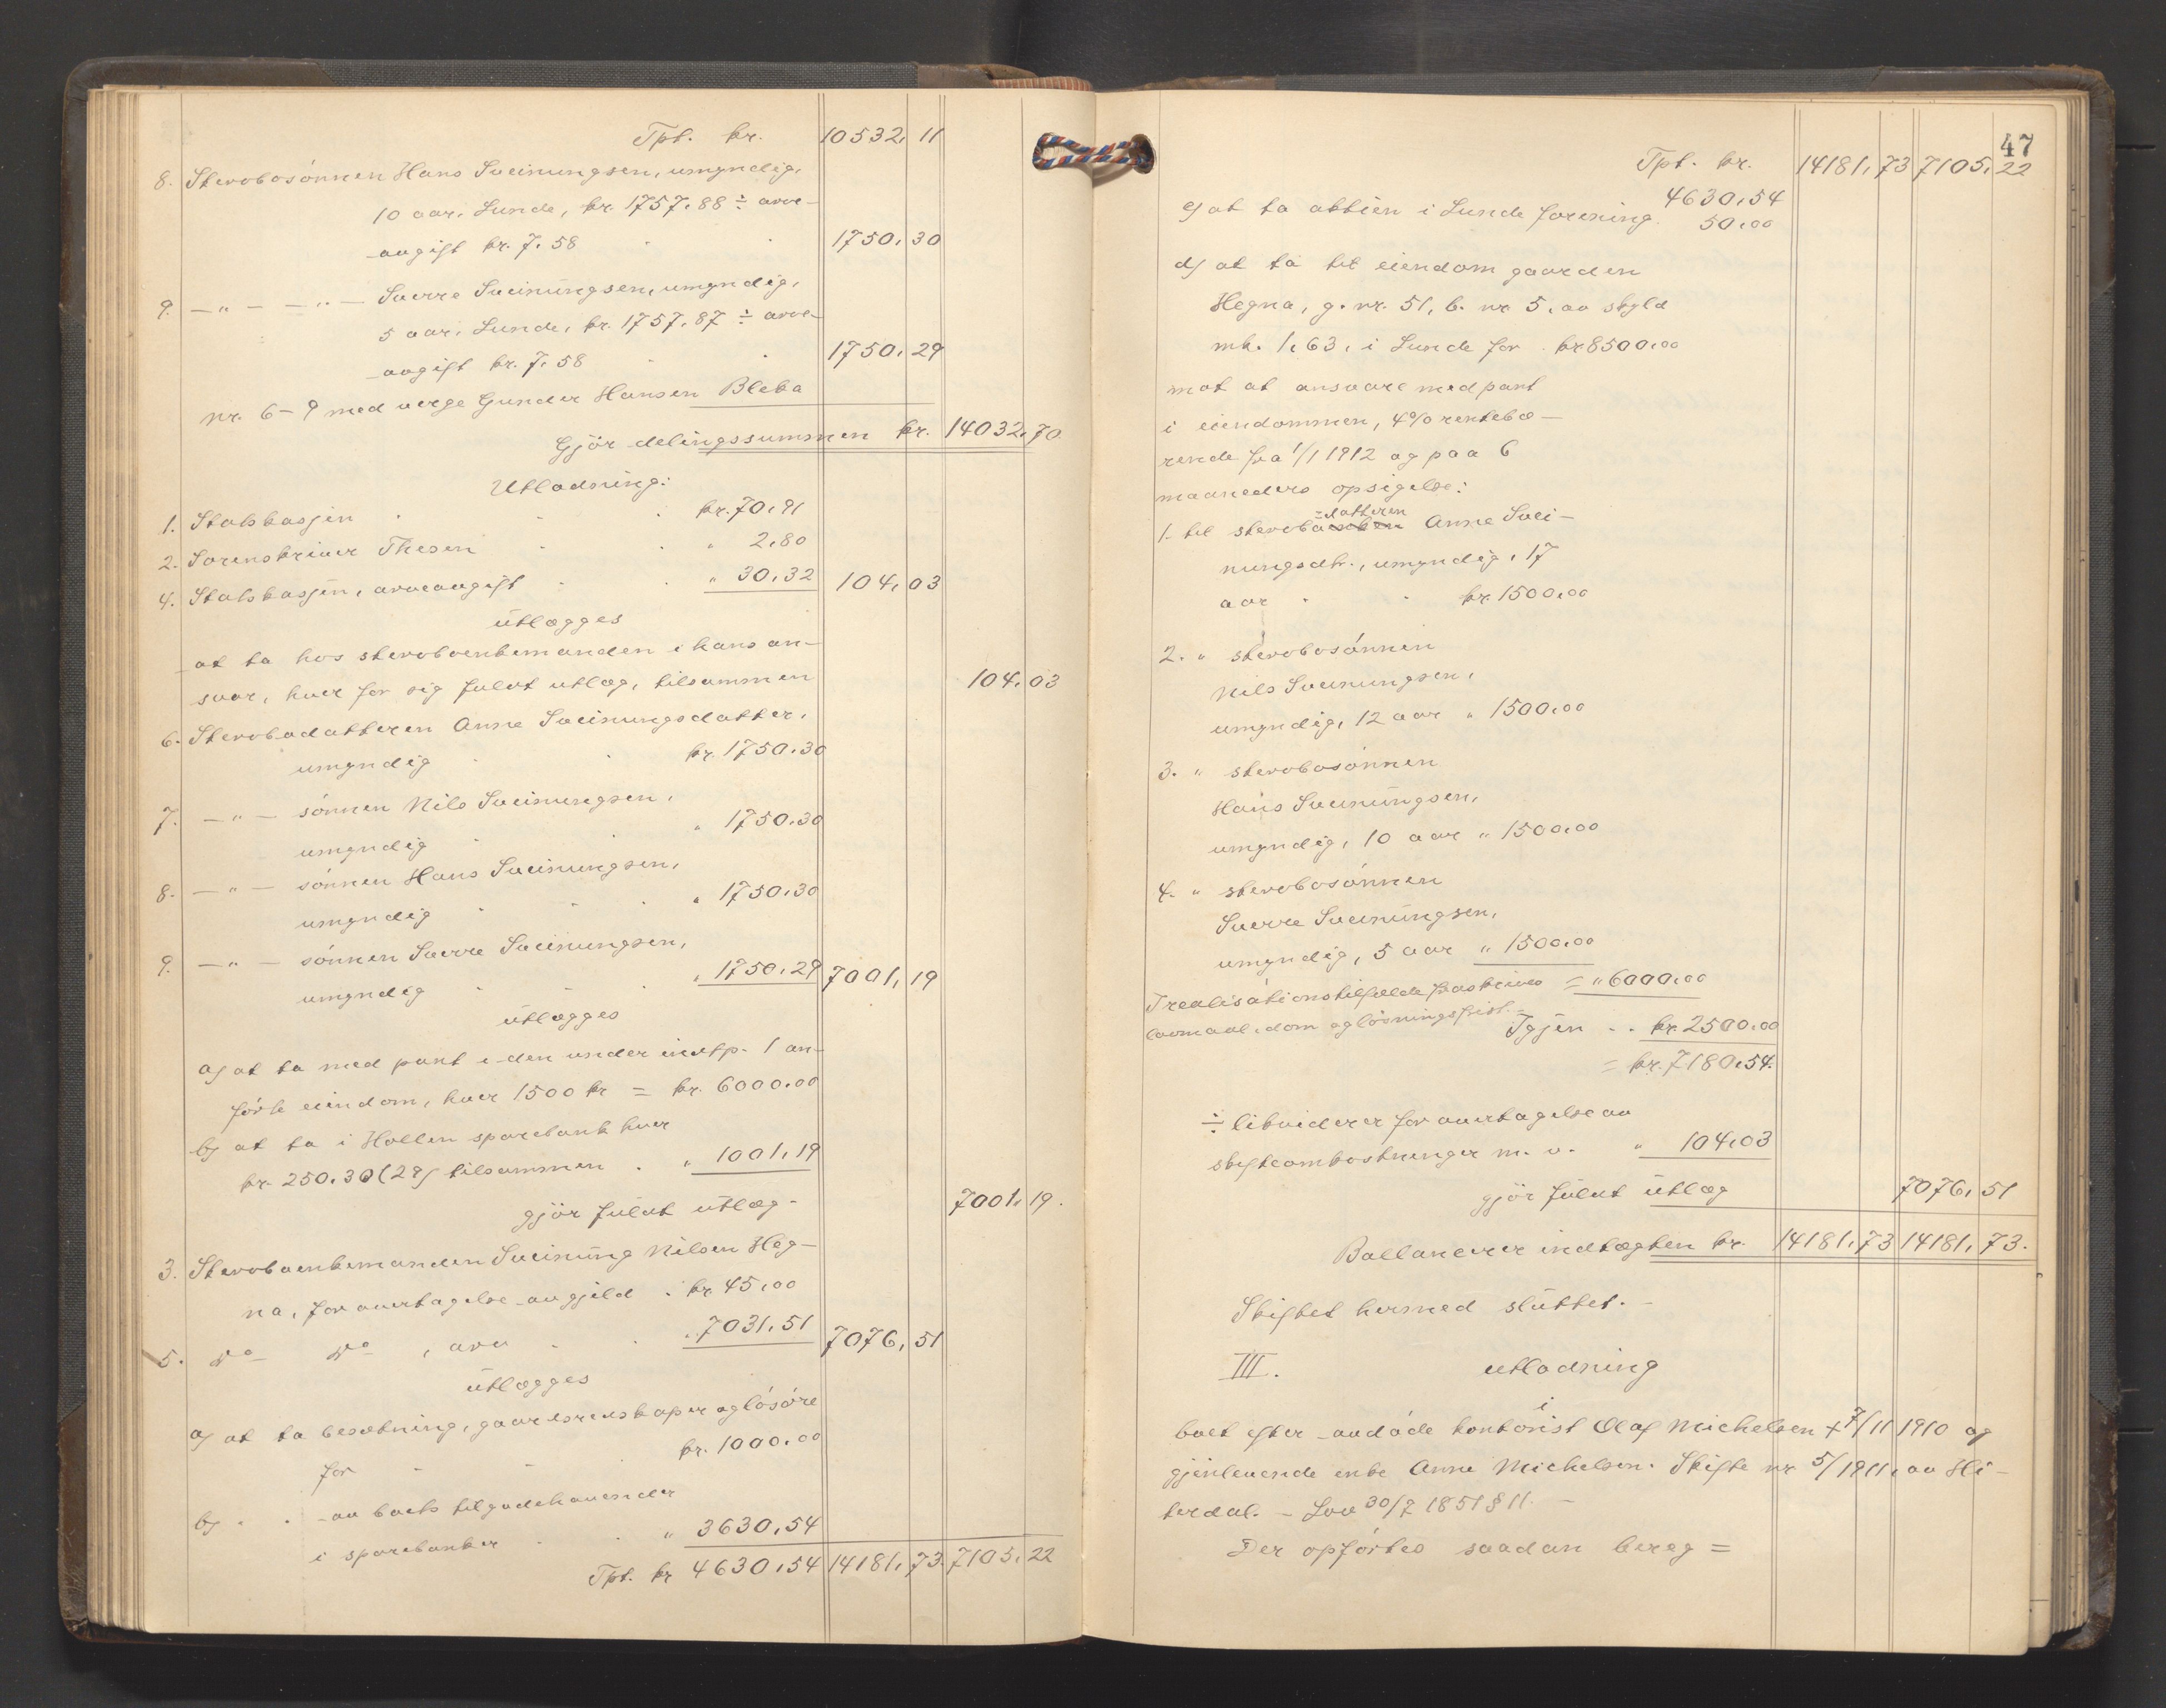 Tpt. kr. 10532,11
8. Stervbosönnen Hans Sveinungsen, umyndig,
10 aar, Lunde, kr. 1757,88 ÷ arve-
avgift kr. 7,58 1750,30
9. —"— —"— Sverre Sveinungsen, umyndig,
5 aar, Lunde, kr. 1757,87 ÷ arve-
avgift kr. 7,58 1750,29
nr. 6-9 med verge Gunder Hansen Bleka
Gjör delingssummen kr. 14032,70
Utlodning:
1. Statskassen kr. 70,91
2. Sorenskriver Thesen " 2,80
4. Statskassen, arveavgift " 30,32 104,03
utlægges
at ta hos stervboenkemanden i hans an-
svar, hver for sig fuldt utlæg, tilsammen 104,03
6. Stervbodatteren Anne Sveinungsdatter,
umyndig kr. 1750,30
7. —"— sönnen Nils Sveinungsen,
umyndig " 1750,30
8. —"— sönnen Hans Sveinungsen,
umyndig " 1750,30
9. —"— sönnen Sverre Sveinungsen,
umyndig " 1750,29 7001,19
utlægges
a) at ta med pant i den under indtp. 1 an-
förte eiendom, hver 1500 kr = kr. 6000,00
b) at ta i Hollen sparebank hver
kr. 250,30 (29) tilsammen " 1001,19
gjör fuldt utlæg - 7001,19.
3. Stervboenkemanden Sveinung Nilsen Heg-
na, for overtagelse av gjeld kr. 45,00
5. do do, arv " 7031,51 7076,51
utlægges
a) at ta besætning, gaardsredskaper og lösöre
for kr. 1000,00
b) " " av boets tilgodehavender
i sparebanker " 3630,54
Tpt. kr 4630,54 14181,73 7105,22
47
Tpt. kr. 14181,73 7105,22
4630,54
c) at ta aktien i Lunde forening 50,00
d) at ta til eiendom gaarden
Hegna, g. nr. 51, b. nr 5, av skyld
mk. 1,63, i Lunde for kr 8500,00
mot at ansvare med pant
i eiendommen, 4% rentebæ-
rende fra 1/1 1912 og paa 6
maaneders opsigelse:
1. til stervbodatteren Anne Svei-
nungsdtr., umyndig, 17
aar kr. 1500,00
2. " stervbosönnen
Nils Sveinungsen,
umyndig, 12 aar " 1500,00
3. " stervbosönnen
Hans Sveinungsen,
umyndig, 10 aar " 1500,00
4. " stervbosönnen
Sverre Sveinungsen,
umyndig, 5 aar " 1500,00
I realisationstilfælde fraskrives = " 6000,00
lovmaal, dom og lösningsfrist. - Igjen kr. 2500,00
= kr. 7180,54.
÷ likviderer for overtagelse av
skifteomkostninger m. v. " 104,03
gjör fuldt utlæg 7076,51
Ballancerer indtægten kr. 14181,73 14181,73.
Skiftet hermed sluttet. -
III. utlodning
i
boet efter avdöde kontorist Olaf Michelsen + 7/11 1910 og
gjenlevende enke Anne Michelsen. Skifte nr 5/1911, av Hi-
terdal. - Lov 30/7 1851 § 11. -
Der opförtes saadan bereg =